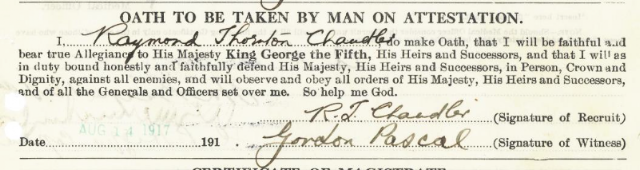 OATH TO BE TAKEN BY MAN ON ATTESTATION.
I, Raymond Thornton Chandler do make Oath, that I will be faithful and
bear true Allegiance to His Majesty King George the Fifth, His Heirs and Successors, and that I will as
in duty bound honestly and faithfully defend His Majesty, His Heirs and Successors, in Person, Crown and
Dignity, against all enemies, and will observe and obey all orders of His Majesty, His Heirs and Successors,
and of all the Generals and Officers set over me. So help me God.
R. T. Chandler (Signature of Recruit)
AUG 14 1917
Date 191 . Gordon Pascal (Signature of Witness)
CERTIFICATE OF MAGISTRATE